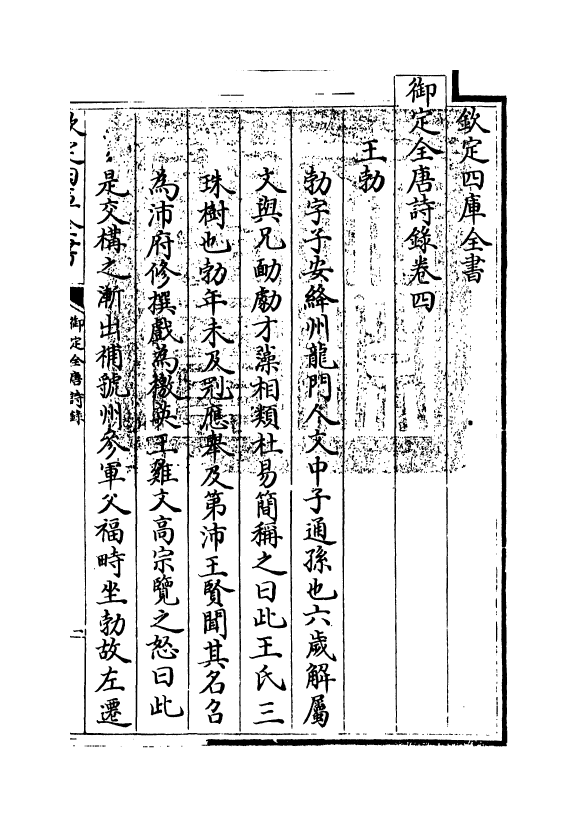 欽定四庫全書
御定全唐詩錄卷四
王勃
勃字子安絳州龍門人文中子通孫也六歲解屬
文與兄勔勮才藻相類杜易簡稱之曰此王氏三
珠樹也勃年未及冠應舉及第沛王賢聞其名召
為沛府修撰戲為檄英王雞文高宗覽之怒曰此
是交構之漸出補虢州參軍父福畤坐勃故左遷
欽定四庫全書
御定全唐詩錄
一